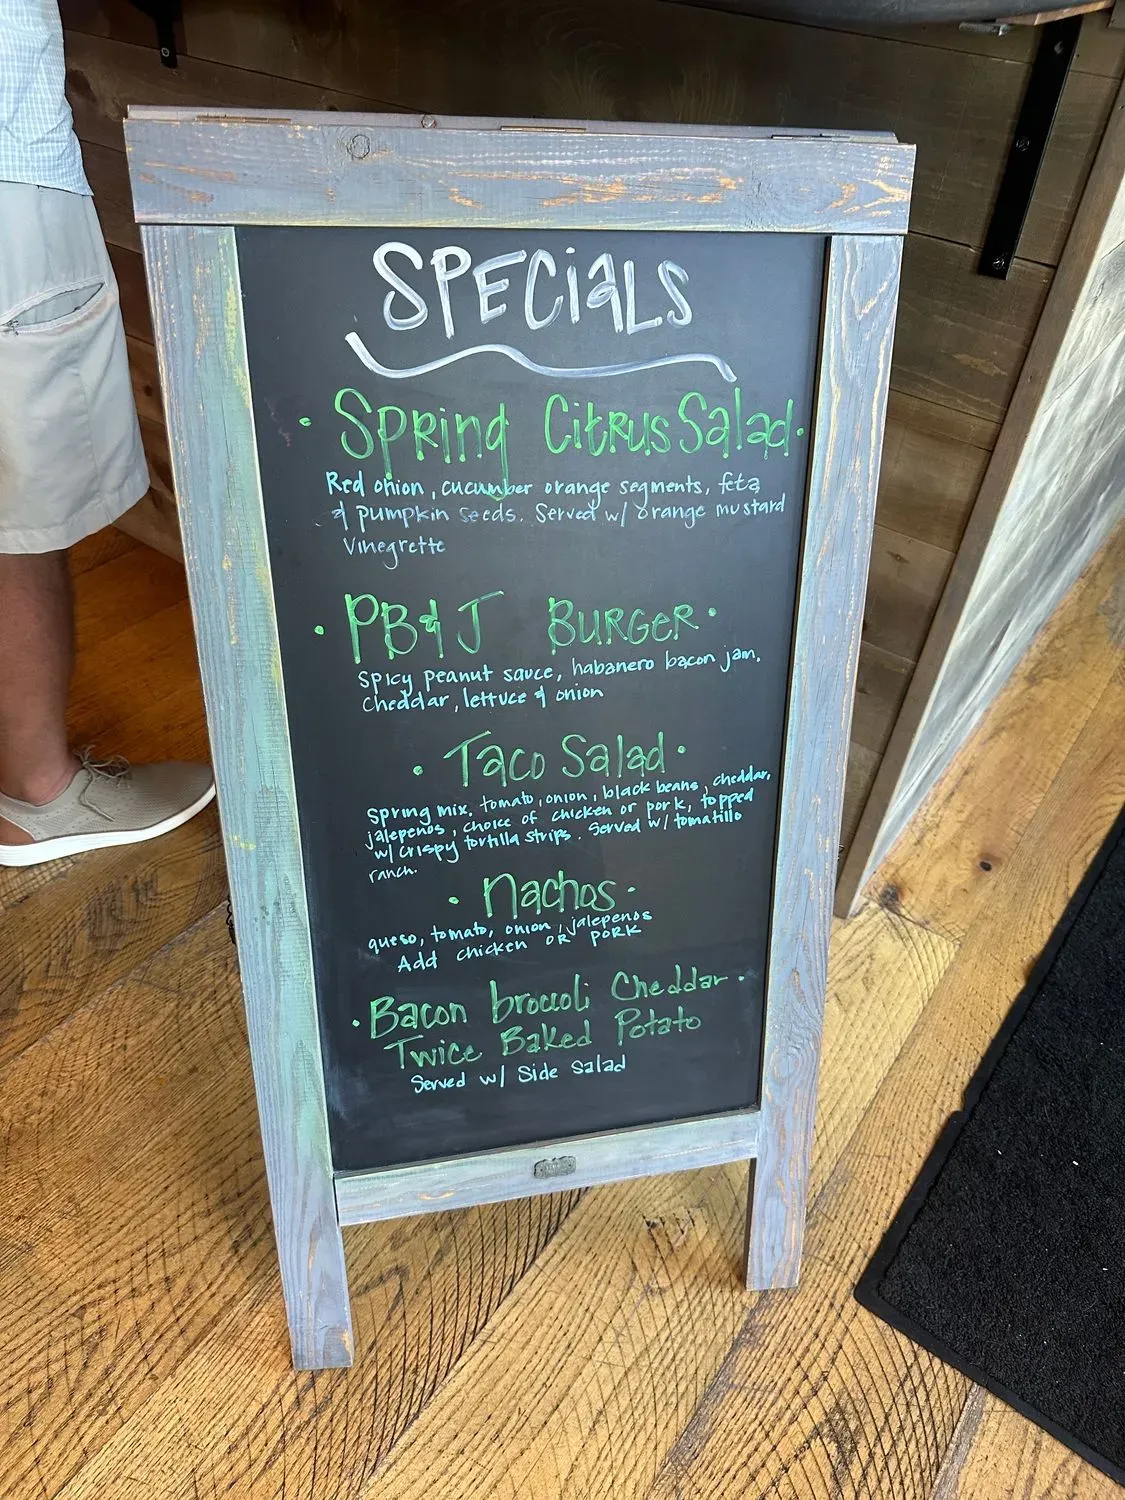 SPECiaLS
Spring Citrus Salad
Red onion, cucumber orange segments, feta
& pumpkin seeds. Served w/ orange mustard
Vinegrette
PB&J BURGER
Spicy peanut sauce, habanero bacon jam,
Cheddar, lettuce & onion
Taco Salad
Spring mix, tomato, onion, black beans, cheddar,
jalepenos, choice of chicken or pork, topped
w/ crispy tortilla strips. Served w/ tomatillo
ranch.
Nachos
queso, tomato, onion, jalepenos
Add chicken OR PORK
Bacon broccoli Cheddar
Twice Baked Potato
Served w/ Side Salad